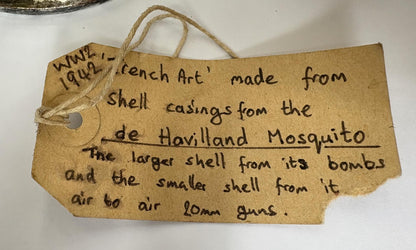 WW2, 'Trench Art' made from
1942
Shell casings fom the
de Havilland Mosquito
The larger shell from its bombs
and the smaller shell from it
air to air 20mm guns.